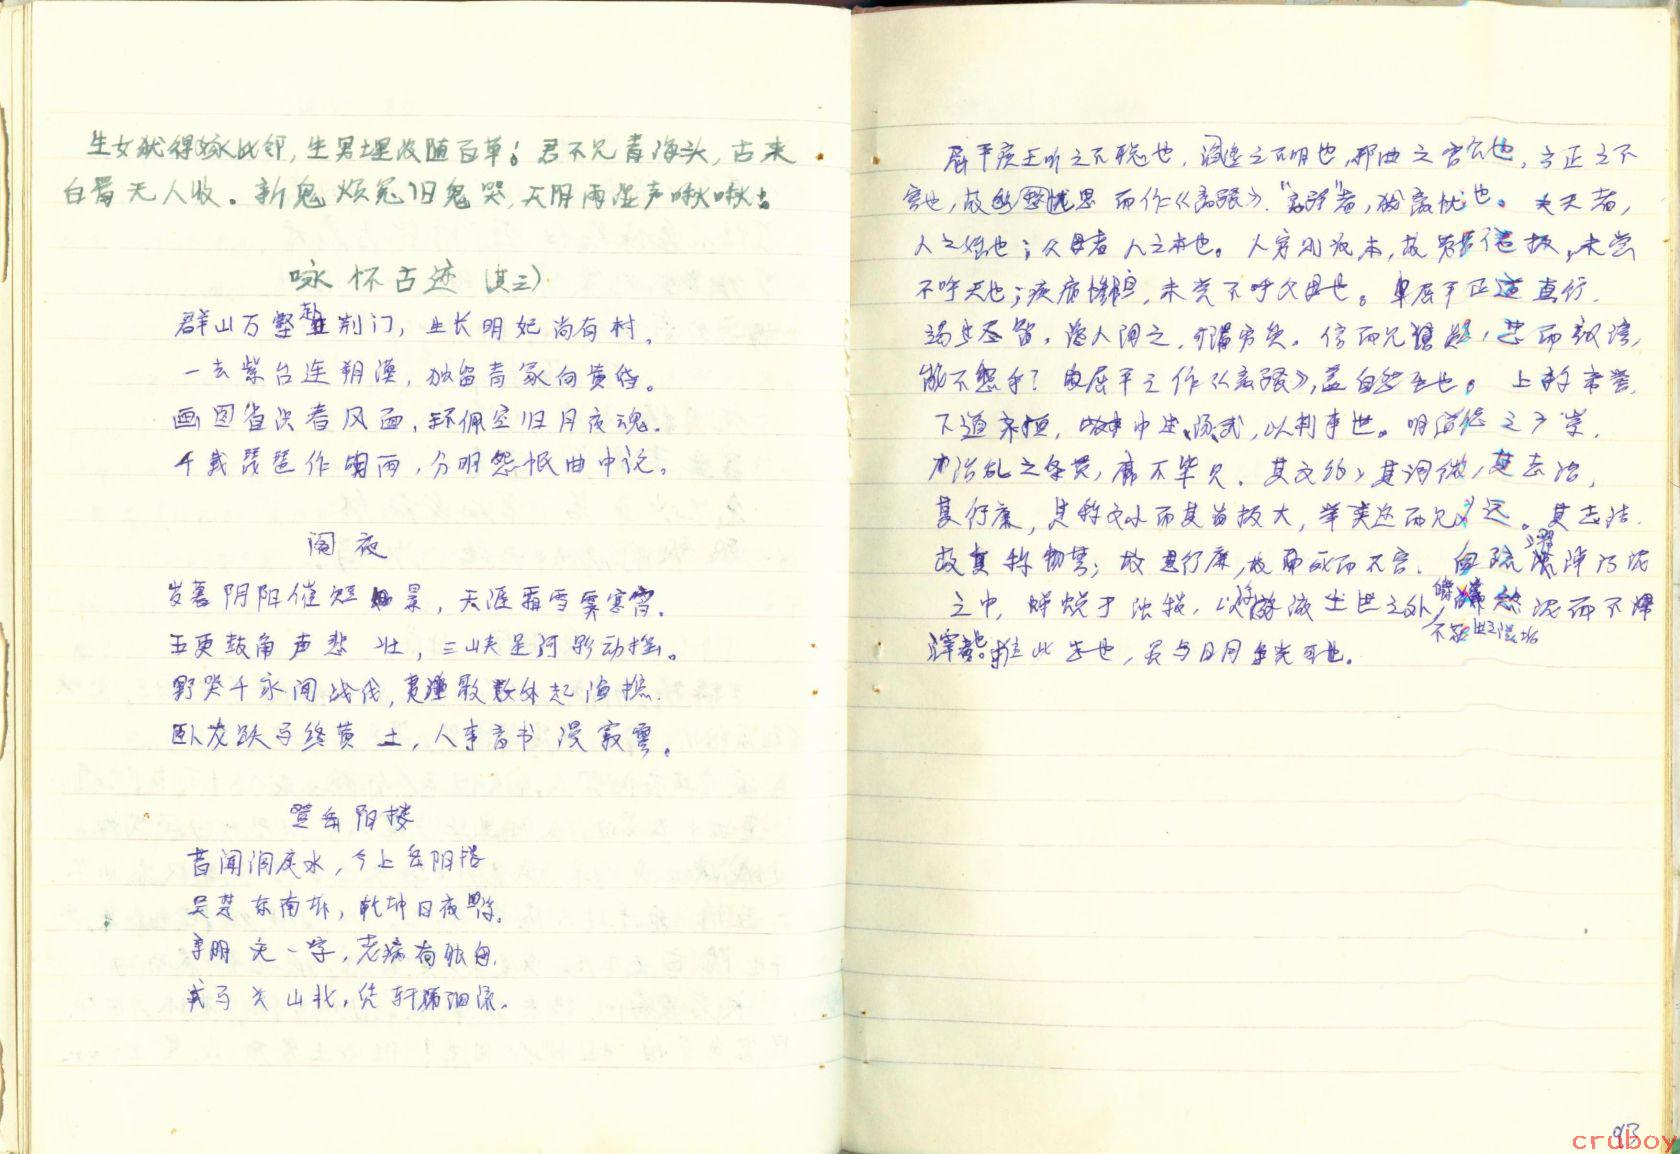 生女犹得嫁比邻，生男埋没随百草！君不见青海头，古来
白骨无人收。新鬼烦冤旧鬼哭，天阴雨湿声啾啾！
咏怀古迹(其三)
群山万壑赴荆门，生长明妃尚有村。
一去紫台连朔漠，独留青冢向黄昏。
画图省识春风面，环佩空归月夜魂。
千载琵琶作胡雨，分明怨恨曲中论。
阁夜
岁暮阴阳催短景，天涯霜雪霁寒宵。
五更鼓角声悲壮，三峡星河影动摇。
野哭千家闻战伐，夷歌数处起渔樵。
卧龙跃马终黄土，人事音书漫寂寥。
登岳阳楼
昔闻洞庭水，今上岳阳楼
吴楚东南坼，乾坤日夜浮。
亲朋无一字，老病有孤舟。
戎马关山北，凭轩涕泗流。
屈平疾王听之不聪也，谗谄之不明也，邪曲之害公也，方正之不
容也，故忧愁思而作《离骚》．“离骚”者，犹离忧也。夫天者，
人之始也；父母者人之本也。人穷则返本，故劳苦倦极，未尝
不呼天也；疾痛惨怛，未尝不呼父母也。屈平正道直行．
竭忠尽智，谗人间之，可谓穷矣。信而见疑，忠而被谤，
能不怨乎？屈平之作《离骚》，盖自怨生也。上称帝喾，
下道齐桓，中述汤武，以刺事世。明道德之广崇，
治乱之条贯，靡不毕见．其文约，其词微，其志洁，
其行廉，其称文小而其旨极大，举类迩而见义远。其志洁．
故其称物芳；故其行廉，故死而不容．自疏濯淖污泥
之中，蝉蜕于浊秽，以浮游尘世之外，皭然泥而不滓
不获世之滋垢
滓者。推此志也，虽与日月争光可也。
93
cruboy